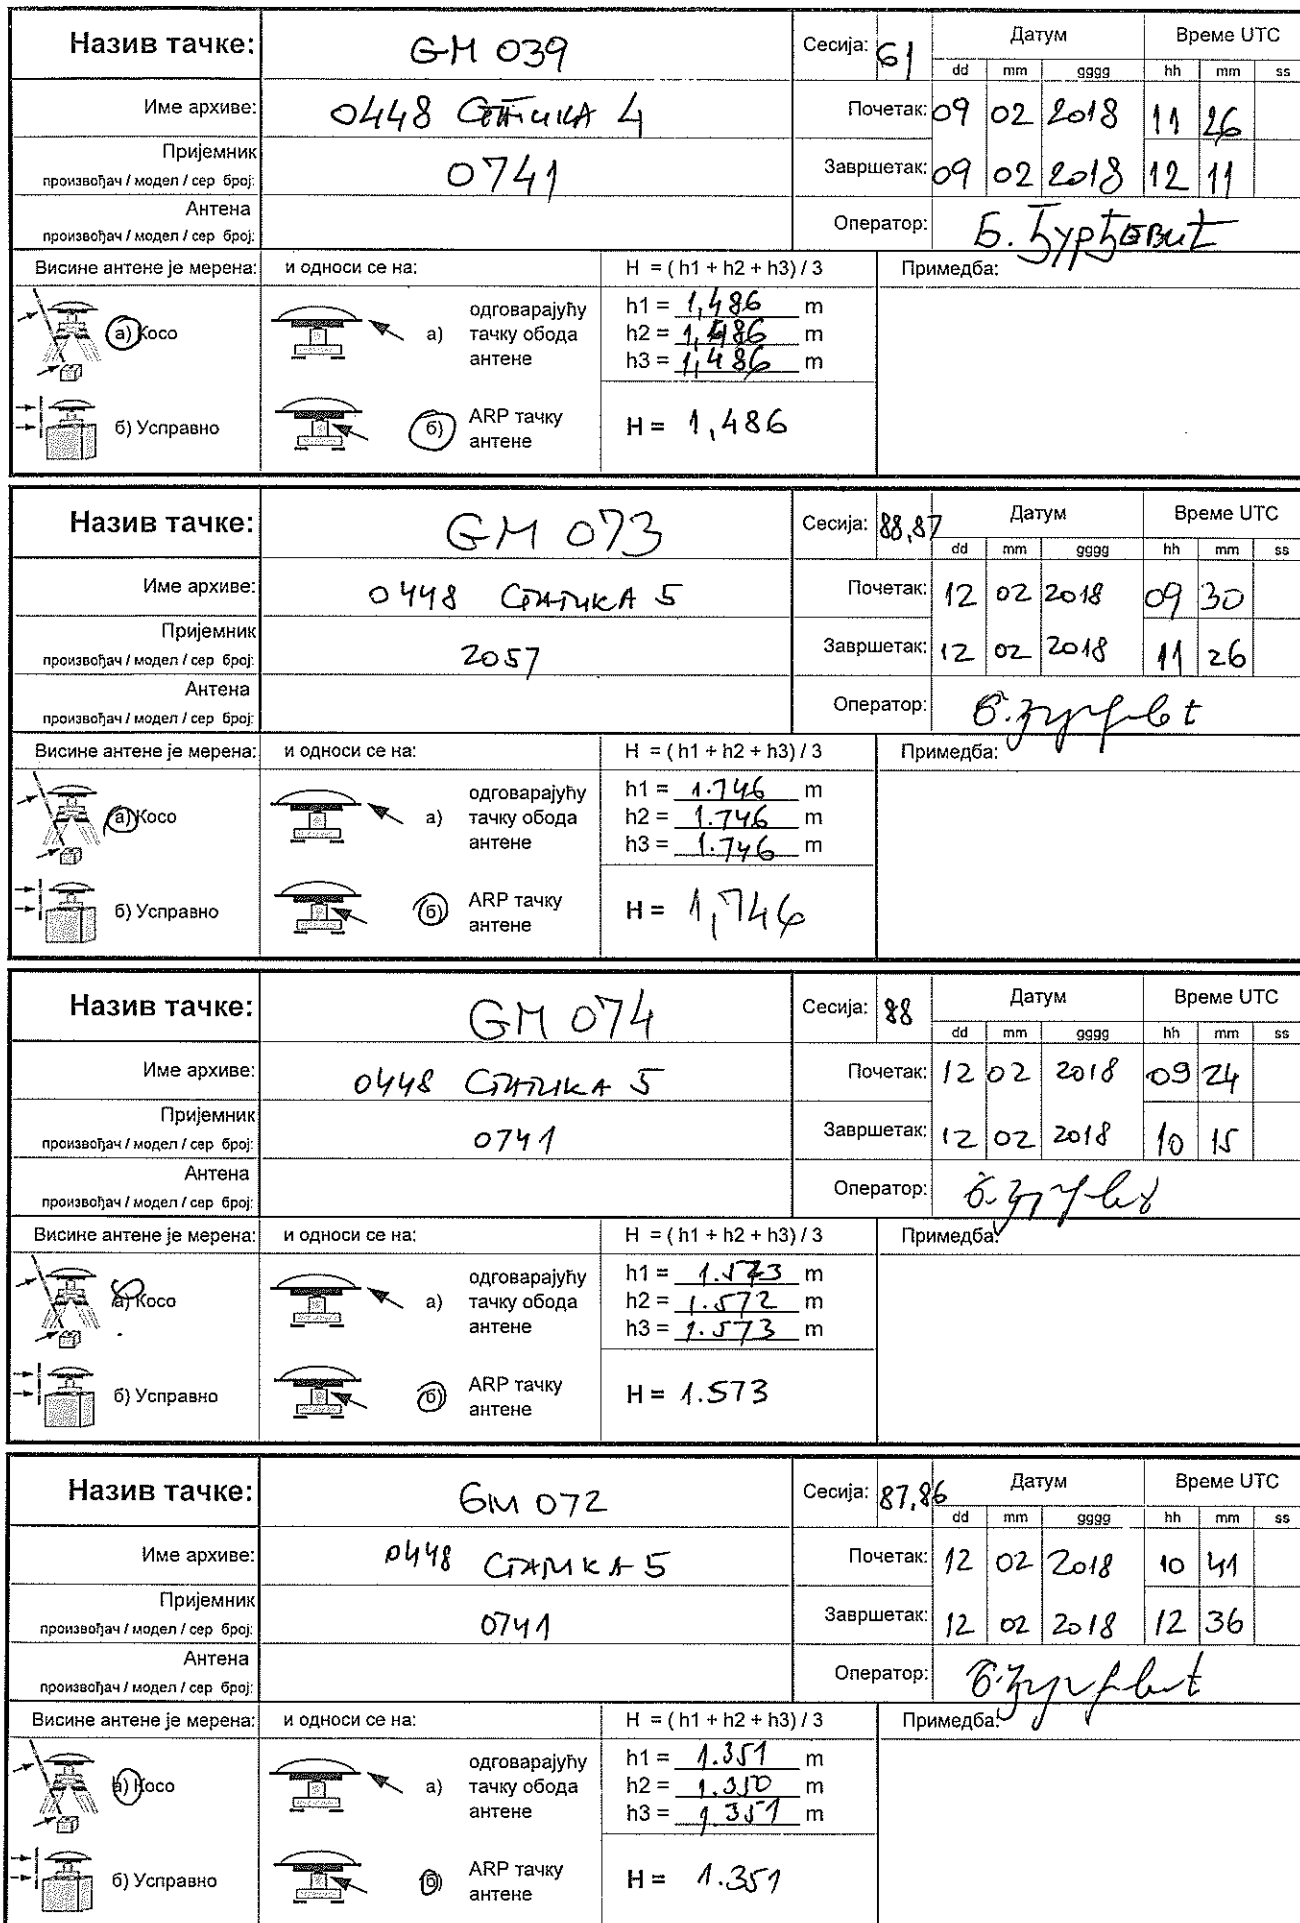 Назив тачке: GM 039 Сесија: 61 Датум Време UTC
dd mm gggg hh mm ss
Име архиве: 0448 СТАТИКА 4 Почетак: 09 02 2018 11 26
Пријемник
произвођач / модел / сер број: 0741 Завршетак: 09 02 2018 12 11
Антена
произвођач / модел / сер број: Оператор: Б. Ђурђевић
Висине антене је мерена: и односи се на: H = ( h1 + h2 + h3 ) / 3 Примедба:
а) Косо а) одговарајућу тачку обода антене
h1 = 1,486 m
h2 = 1,486 m
h3 = 1,486 m
б) Усправно б) ARP тачку антене H = 1,486
Назив тачке: GM 073 Сесија: 88,87 Датум Време UTC
dd mm gggg hh mm ss
Име архиве: 0448 СТАТИКА 5 Почетак: 12 02 2018 09 30
Пријемник
произвођач / модел / сер број: 2057 Завршетак: 12 02 2018 11 26
Антена
произвођач / модел / сер број: Оператор:
Висине антене је мерена: и односи се на: H = ( h1 + h2 + h3 ) / 3 Примедба:
а) Косо а) одговарајућу тачку обода антене
h1 = 1.746 m
h2 = 1.746 m
h3 = 1.746 m
б) Усправно б) ARP тачку антене H = 1,746
Назив тачке: GM 074 Сесија: 88 Датум Време UTC
dd mm gggg hh mm ss
Име архиве: 0448 СТАТИКА 5 Почетак: 12 02 2018 09 24
Пријемник
произвођач / модел / сер број: 0741 Завршетак: 12 02 2018 10 15
Антена
произвођач / модел / сер број: Оператор:
Висине антене је мерена: и односи се на: H = ( h1 + h2 + h3 ) / 3 Примедба:
а) Косо а) одговарајућу тачку обода антене
h1 = 1.573 m
h2 = 1.572 m
h3 = 1.573 m
б) Усправно б) ARP тачку антене H = 1.573
Назив тачке: GM 072 Сесија: 87,86 Датум Време UTC
dd mm gggg hh mm ss
Име архиве: 0448 СТАТИКА 5 Почетак: 12 02 2018 10 41
Пријемник
произвођач / модел / сер број: 0741 Завршетак: 12 02 2018 12 36
Антена
произвођач / модел / сер број: Оператор:
Висине антене је мерена: и односи се на: H = ( h1 + h2 + h3 ) / 3 Примедба:
а) Косо а) одговарајућу тачку обода антене
h1 = 1.351 m
h2 = 1.350 m
h3 = 1.351 m
б) Усправно б) ARP тачку антене H = 1.351